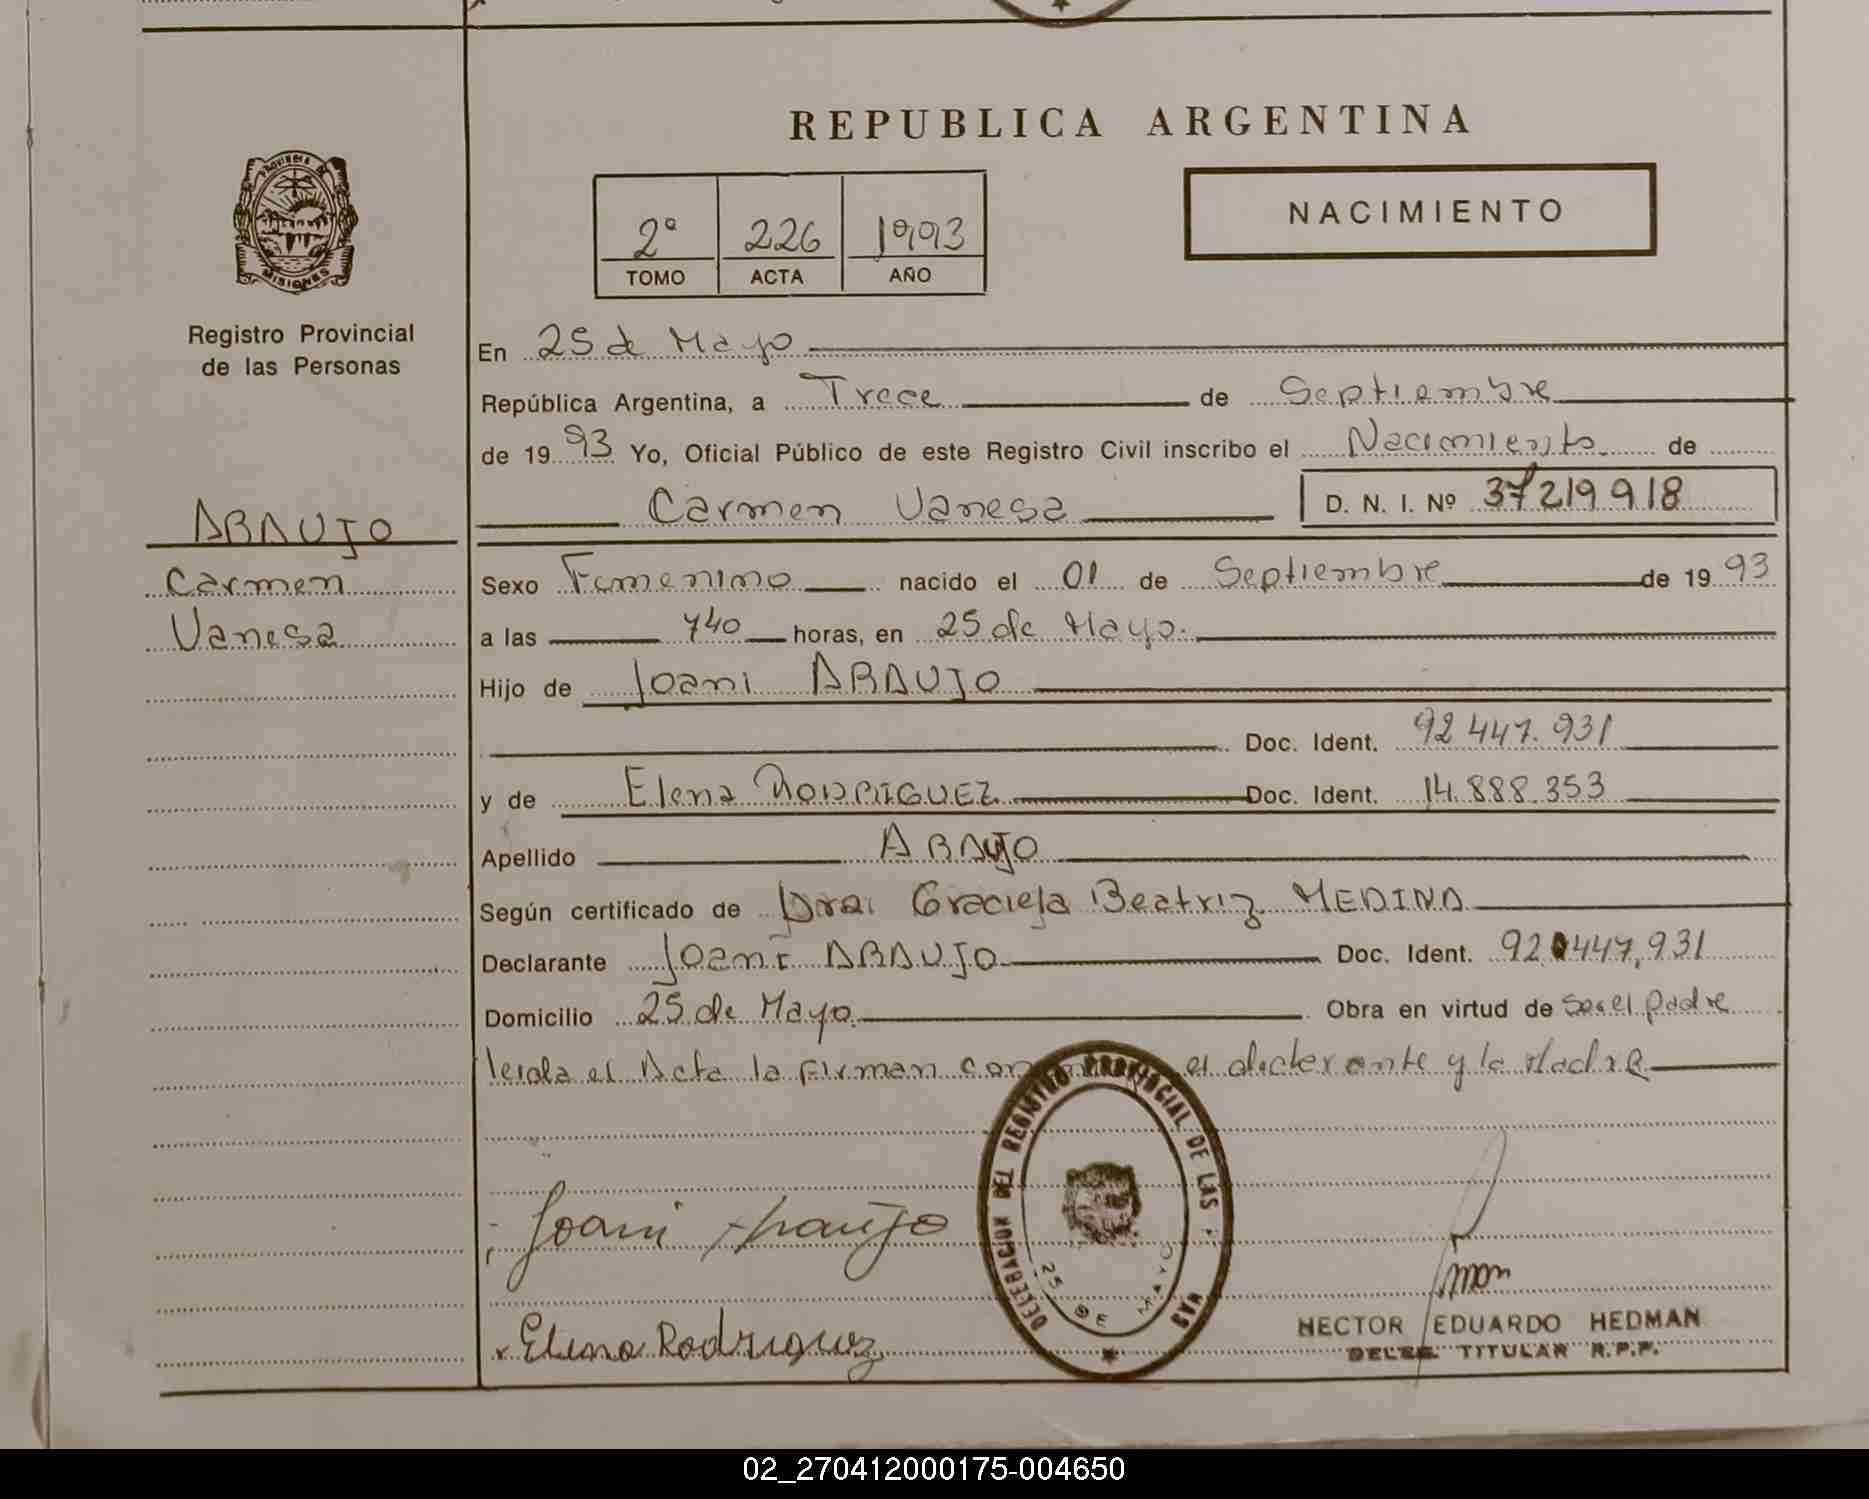 REPUBLICA ARGENTINA
PROVINCIA DE MISIONES
2º 226 1993
TOMO ACTA AÑO
NACIMIENTO
Registro Provincial
de las Personas
ARAUJO
Carmen
Vanesa
En 25 de Mayo
República Argentina, a Trece de Septiembre
de 1993 Yo, Oficial Público de este Registro Civil inscribo el Nacimiento de
Carmen Vanesa D. N. I. Nº 37219918
Sexo Femenino nacido el 01 de Septiembre de 1993
a las 740 horas, en 25 de Mayo.
Hijo de Joani ARAUJO
Doc. Ident. 92 447.931
y de Elena RODRIGUEZ Doc. Ident. 14.888.353
Apellido ARAUJO
Según certificado de Dra. Graciela Beatriz MEDINA
Declarante Joani ARAUJO Doc. Ident. 92 447,931
Domicilio 25 de Mayo Obra en virtud de ser el padre
leida el Acta la Firman el declarante y la Madre
DELEGACION DEL REGISTRO PROVINCIAL DE LAS
25 DE MAYO
Joani Araujo
Elena Rodriguez
HECTOR EDUARDO HEDMAN
DELEG. TITULAR R.P.P.
02_270412000175-004650